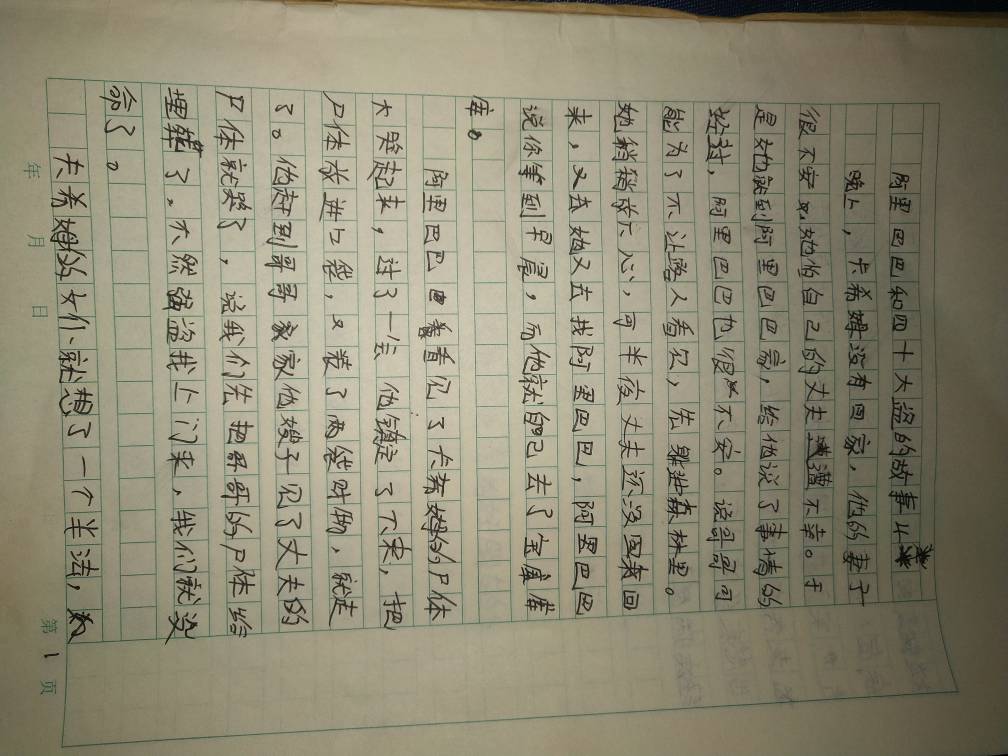 阿里巴巴和四十大盗的故事4
晚上，卡希姆没有回家，他的妻子
很不安，她怕自己的丈夫遭不幸。于
是她就到阿里巴巴家，给他说了事情的
经过，阿里巴巴也很不安。说哥哥可
能为了不让路人看见，先躲进森林里。
她稍稍放下心，可半夜丈夫还没有回
来，又去她又去找阿里巴巴，阿里巴巴
说你等到早晨，而他就自己去了宝库
库。
阿里巴巴看见了卡希姆的尸体
大哭起来，过了一会他镇定了下来，把
尸体放进口袋，又装了两袋财物，就走
了。他赶到哥哥家他嫂子见了丈夫的
尸体就哭了，说我们先把哥哥的尸体给
埋葬了，不然强盗找上门来，我们就没
命了。
卡希姆的女仆就想了一个半法，
年 月 日
第 1 页